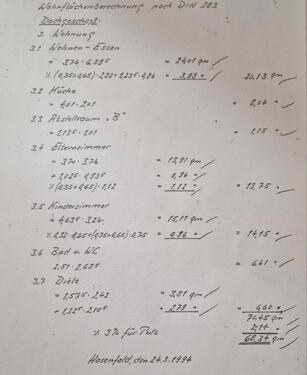 Wohnflächenberechnung nach DIN 283
Dachgeschoß:
3. Wohnung
3.1 Wohnen - Essen
= 3,76 · 6,385 = 24,01 qm
% (0,35+0,65) · 2,82 + 2,235 · 0,86 = 3,88 " 20,13 qm
3.2 Küche
= 4,01 · 2,01 = 8,06 "
3.3 Abstellraum „B"
= 1,135 · 1,01 = 1,15 "
3.4 Elternzimmer
= 3,70 · 3,76 = 13,91 qm
+ 1,025 · 0,935 = 0,96 "
% (0,35+0,65) · 1,12 = 1,12 " = 13,75 "
3.5 Kinderzimmer
= 4,635 · 3,26 = 15,11 qm
% 0,32 · 0,65 + (0,35+0,65) · 0,75 = 0,96 " = 14,15 "
3.6 Bad u. WC
2,51 · 2,635 = 6,61 "
3.7 Diele
= 1,575 · 2,42 = 3,81 qm
+ 1,325 · 2,105 = 2,79 " = 6,60 "
70,45 qm
% 3% für Putz 2,11 "
68,34 qm
Hosenfeld, den 24.3.1994